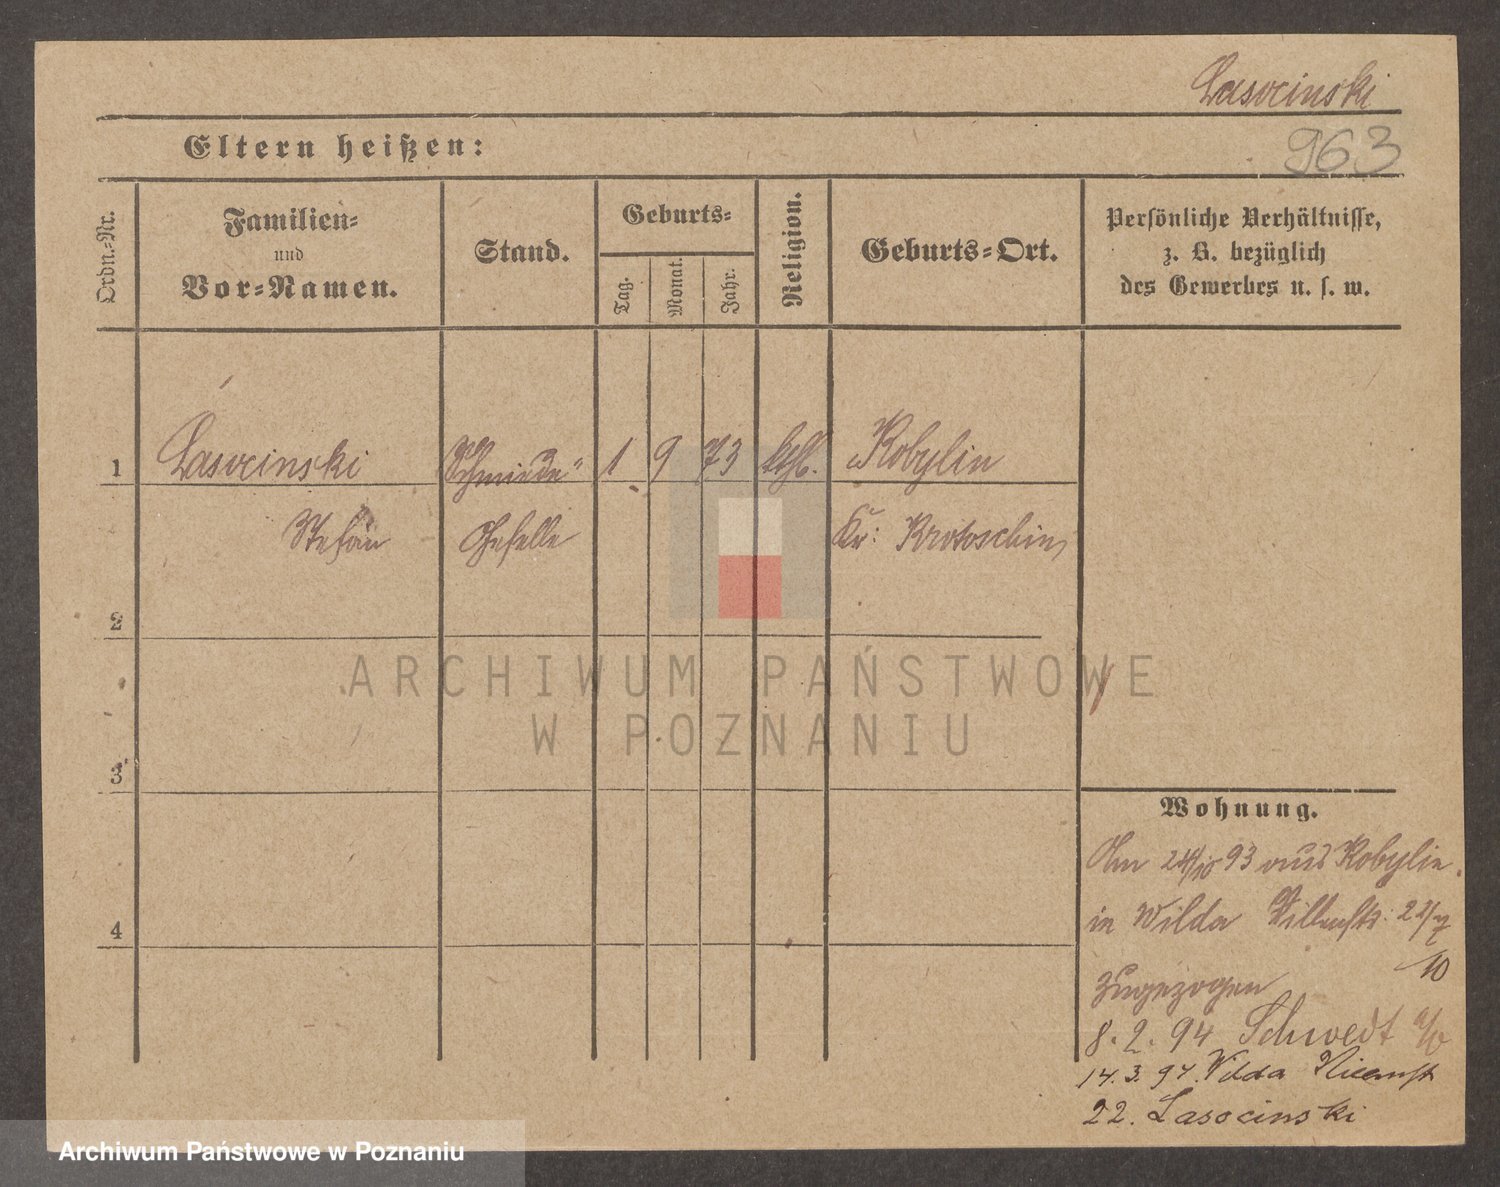 Lasocinski
963
Eltern heißen:
Ordn.-Nr.
Familien-
und
Vor-Namen.
Stand.
Geburts-
Tag.
Monat.
Jahr.
Religion.
Geburts-Ort.
Persönliche Verhältnisse,
z. B. bezüglich
des Gewerbes u. s. w.
1 Lasocinski Schmiede- 1 9 73 kth. Kobylin
Stefan Geselle Kr: Krotoschin
2
3
4
ARCHIWUM PAŃSTWOWE
W POZNANIU
Wohnung.
Am 24/10 93 aus Kobylin
in Wilda 22/7
10
zugezogen
8. 2. 94 Schwedt a/O
14. 3. 94. Wilda
22. Lasocinski
Archiwum Państwowe w Poznaniu